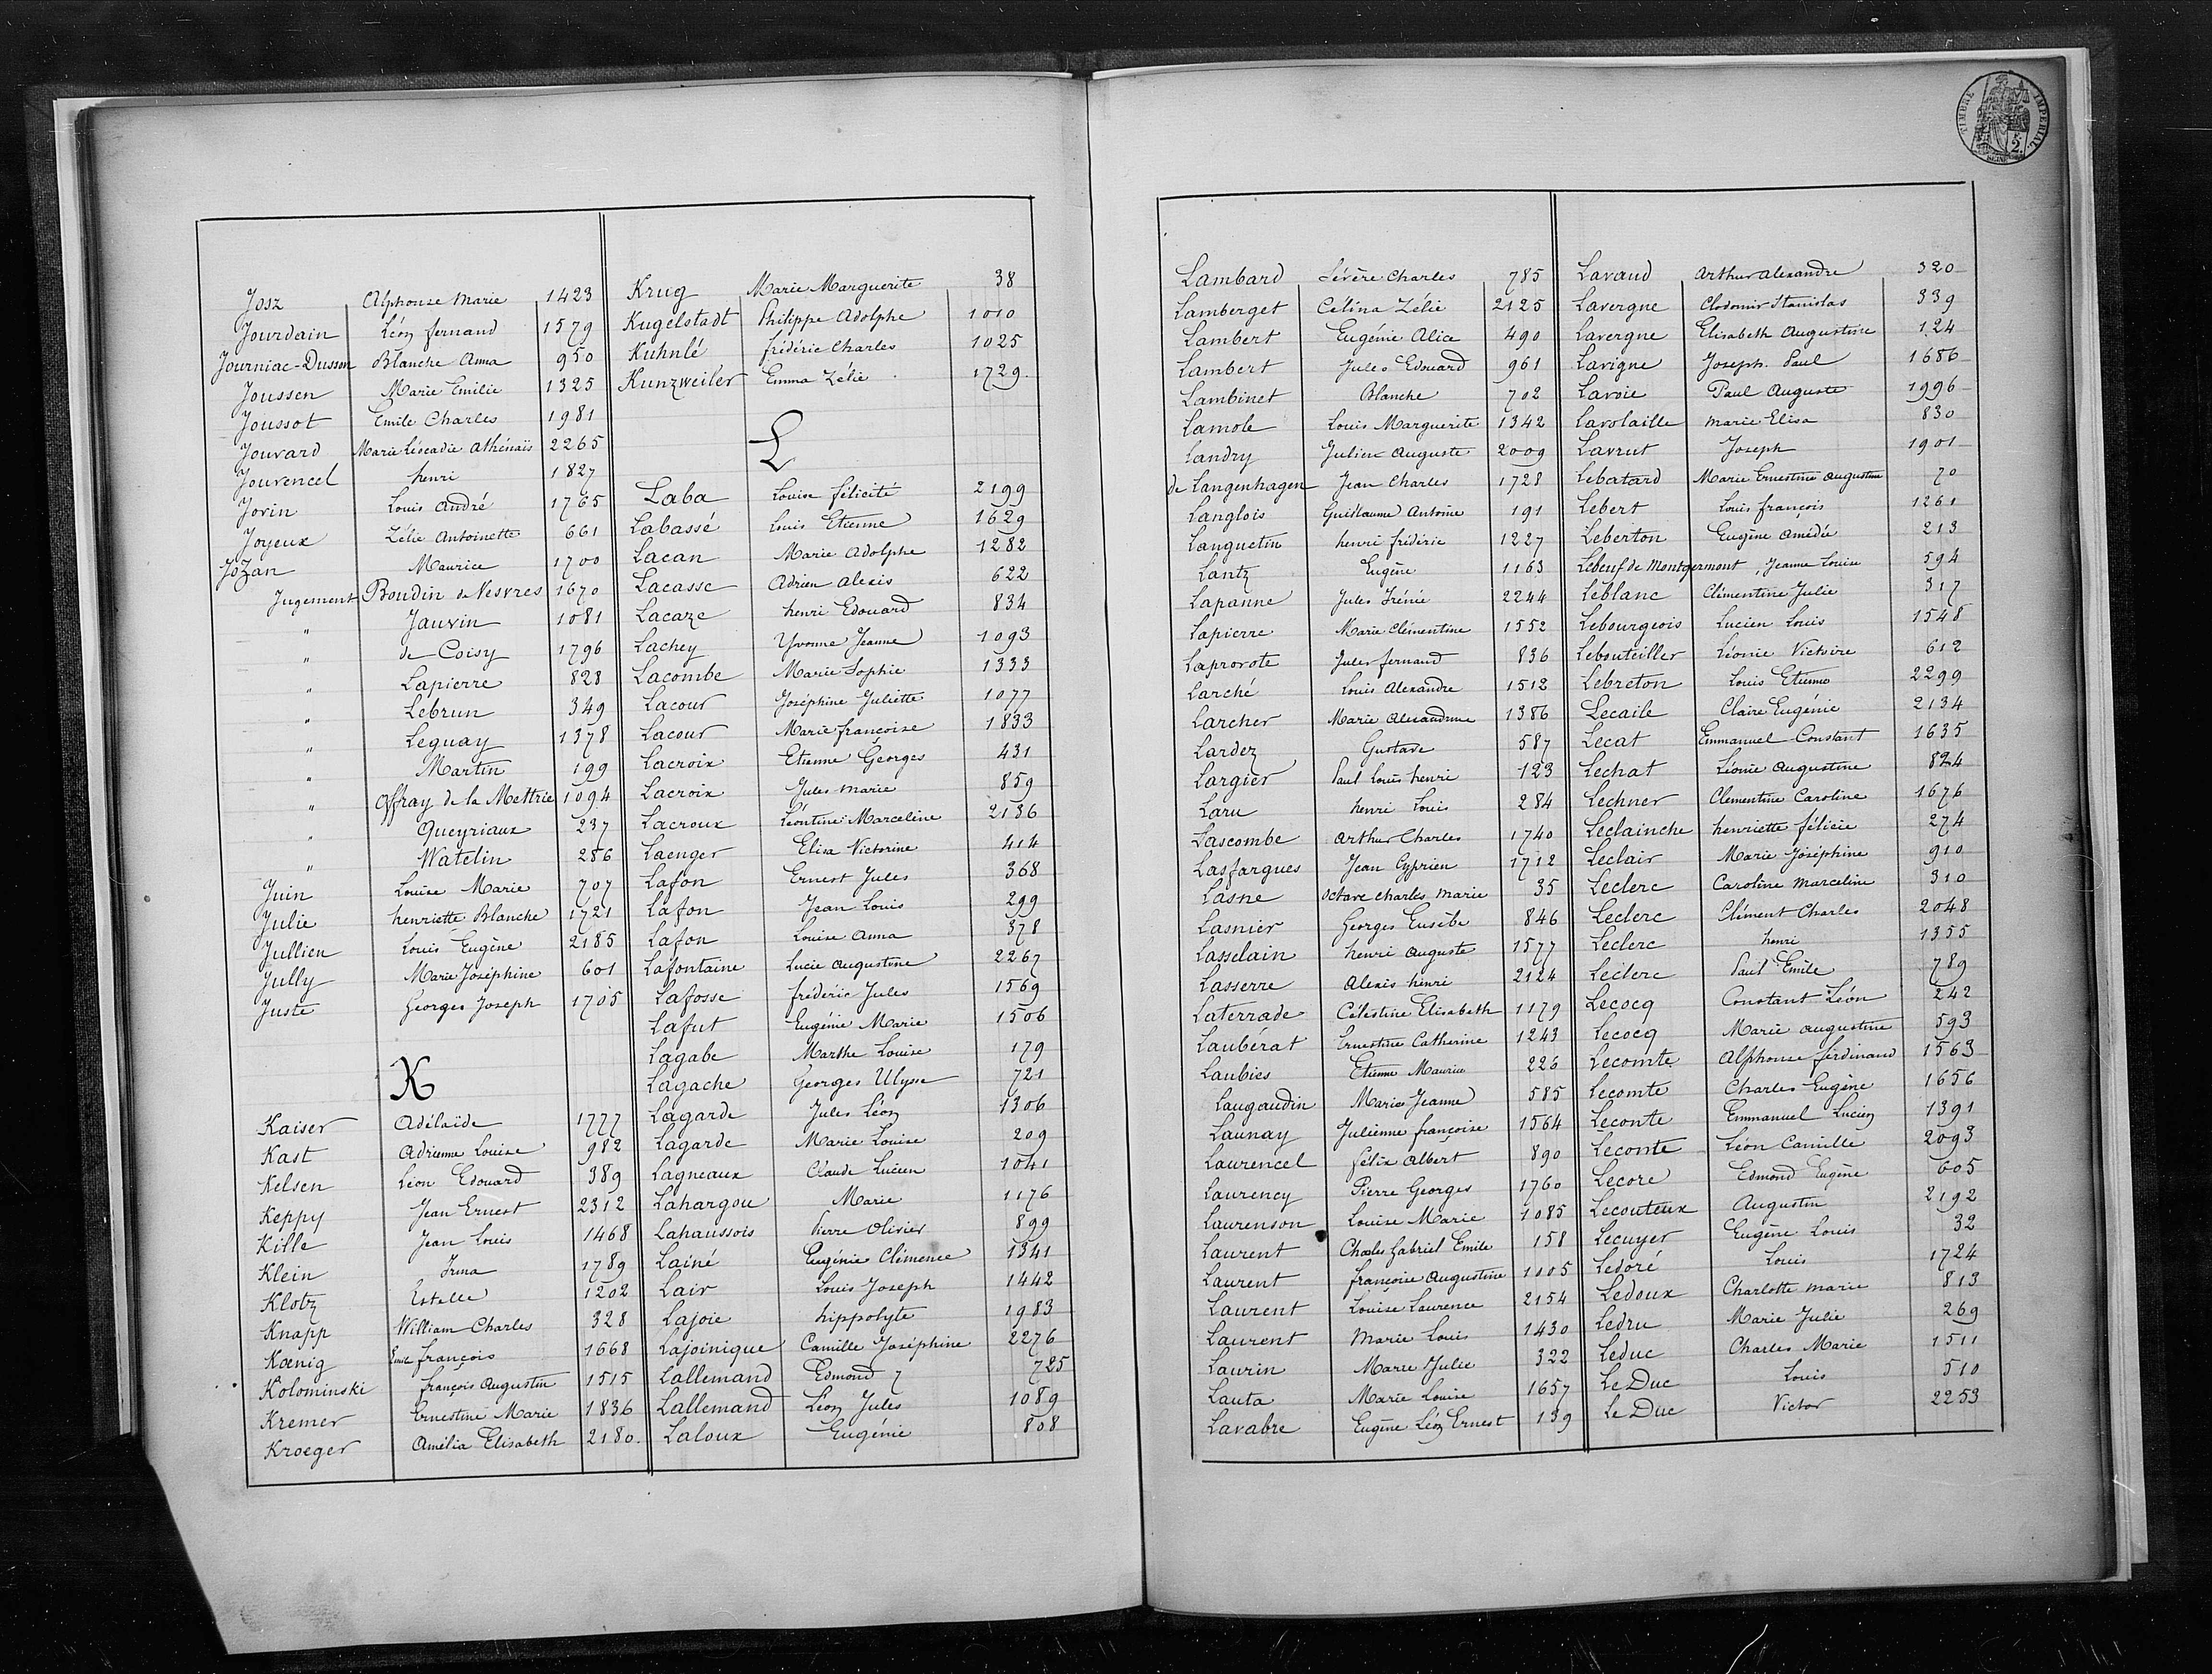 Josz Alphonse Marie 1423
Jourdain Léon fernand 1579
Journiac-Dusson Blanche Anna 950
Joussen Marie Emilie 1325
Joussot Emile Charles 1981
Jouvard Marie Léocadie Athénaïs 2265
Jouvencel henri 1827
Jovin Louis André 1765
Joyeux Zélie Antoinette 661
Jozan Maurice 1700
Jugement Boudin de Vesvres 1670
" Jauvin 1081
" de Coisy 1796
" Lapierre 828
" Lebrun 349
" Leguay 1378
" Martin 199
" Offray de la Mettrie 1094
" Queyriaux 237
" Watelin 286
Juin Louise Marie 707
Julie henriette Blanche 1721
Jullien Louis Eugène 2185
Jully Marie Joséphine 601
Juste Georges Joseph 1705
K
Kaiser Adélaïde 1777
Kast Adrienne Louise 982
Kelsen Léon Edouard 389
Keppy Jean Ernest 2312
Kille Jean Louis 1468
Klein Irma 1789
Klotz Estelle 1202
Knapp William Charles 328
Kœnig Emile françois 1668
Kolominski françois Augustin 1515
Kremer Ernestine Marie 1836
Kroeger Amélia Elisabeth 2180.
Krug Marie Marguerite 38
Kugelstadt Philippe Adolphe 1010
Kuhnlé frédéric Charles 1025
Kunzweiler Emma Zélie 1729.
L
Laba Louise félicité 2199
Labassé Louis Etienne 1629
Lacan Marie Adolphe 1282
Lacasse Adrien Alexis 622
Lacaze henri Edouard 834
Lachey Yvonne Jeanne 1093
Lacombe Marie Sophie 1333
Lacour Joséphine Juliette 1077
Lacour Marie françoise 1833
Lacroix Etienne Georges 431
Lacroix Jules Marie 859
Lacroux Léontine Marceline 2186
Laenger Elisa Victorine 414
Lafon Ernest Jules 368
Lafon Jean Louis 299
Lafon Louise Anna 378
Lafontaine Lucie Augustine 2267
Lafosse frédéric Jules 1569
Lafut Eugénie Marie 1506
Lagabe Marthe Louise 179
Lagache Georges Ulysse 721
Lagarde Jules Léon 1306
Lagarde Marie Louise 209
Lagneaux Claude Lucien 1041
Lahargou Marie 1176
Lahaussois Pierre Olivier 899
Lainé Eugénie Clémence 1341
Lair Louis Joseph 1442
Lajoie hippolyte 1983
Lajoinique Camille Joséphine 2276
Lallemand Edmond 725
Lallemand Léon Jules 1089
Laloux Eugénie 808
TIMBRE IMPERIAL
Lambard Sévère Charles 785
Lamberget Célina Zélie 2125
Lambert Eugénie Alice 490
Lambert Jules Edouard 961
Lambinet Blanche 702
Lamole Louis Marguerite 1342
Landry Julien Auguste 2009
de Langenhagen Jean Charles 1728
Langlois Guillaume Antoine 191
Languetin henri frédéric 1227
Lantz Eugène 1163
Lapanne Jules Irénée 2244
Lapierre Marie Clémentine 1552
Laprovote Jules fernand 836
Larché Louis Alexandre 1512
Larcher Marie Alexandrine 1386
Lardez Gustave 587
Largier Paul Louis henri 123
Laru henri Louis 284
Lascombe Arthur Charles 1740
Lasfargues Jean Cyprien 1712
Lasne Octave Charles Marie 35
Lasnier Georges Eusèbe 846
Lasselain henri Auguste 1577
Lasserre Alexis henri 2124
Laterrade Célestine Elisabeth 1179
Laubérat Ernestine Catherine 1243
Laubies Etienne Maurice 226
Laugaudin Marie Jeanne 585
Launay Julienne françoise 1564
Laurencel félix Albert 890
Laurency Pierre Georges 1760
Laurenson Louise Marie 1085
Laurent Charles Gabriel Emile 158
Laurent françoise Augustine 1005
Laurent Louise Laurence 2154
Laurent Marie Louis 1430
Laurin Marie Julie 322
Lauta Marie Louise 1657
Lavabre Eugène Léon Ernest 139
Lavaud Arthur Alexandre 320
Lavergne Clodomir Stanislas 339
Lavergne Elisabeth Augustine 124
Lavigne Joseph Paul 1686
Lavoie Paul Auguste 1996
Lavolaille Marie Elisa 830
Lavrut Joseph 1901
Lebatard Marie Ernestine Augustine 70
Lebert Louis françois 1261
Leberton Eugène Amédée 213
Lebeuf de Montgermont, Jeanne Louise 594
Leblanc Clémentine Julie 317
Lebourgeois Lucien Louis 1548
Lebouteiller Léonie Victoire 612
Lebreton Louis Etienne 2299
Lecaile Claire Eugénie 2134
Lecat Emmanuel Constant 1635
Lechat Léonie Augustine 824
Lechner Clementine Caroline 1676
Leclainche henriette félicie 274
Leclair Marie Joséphine 910
Leclerc Caroline Marceline 310
Leclerc Clément Charles 2048
Leclerc henri 1355
Leclerc Paul Emile 789
Lecocq Constant Léon 242
Lecocq Marie Augustine 593
Lecomte Alphonse ferdinand 1563
Lecomte Charles Eugène 1656
Leconte Emmanuel Lucien 1391
Leconte Léon Camille 2093
Lecore Edmond Eugène 605
Lecouteux Augustin 2192
Lecuyer Eugène Louis 32
Ledoré Louis 1724
Ledoux Charlotte Marie 813
Ledru Marie Julie 269
Leduc Charles Marie 1511
Le Duc Louis 510
Le Duc Victor 2253